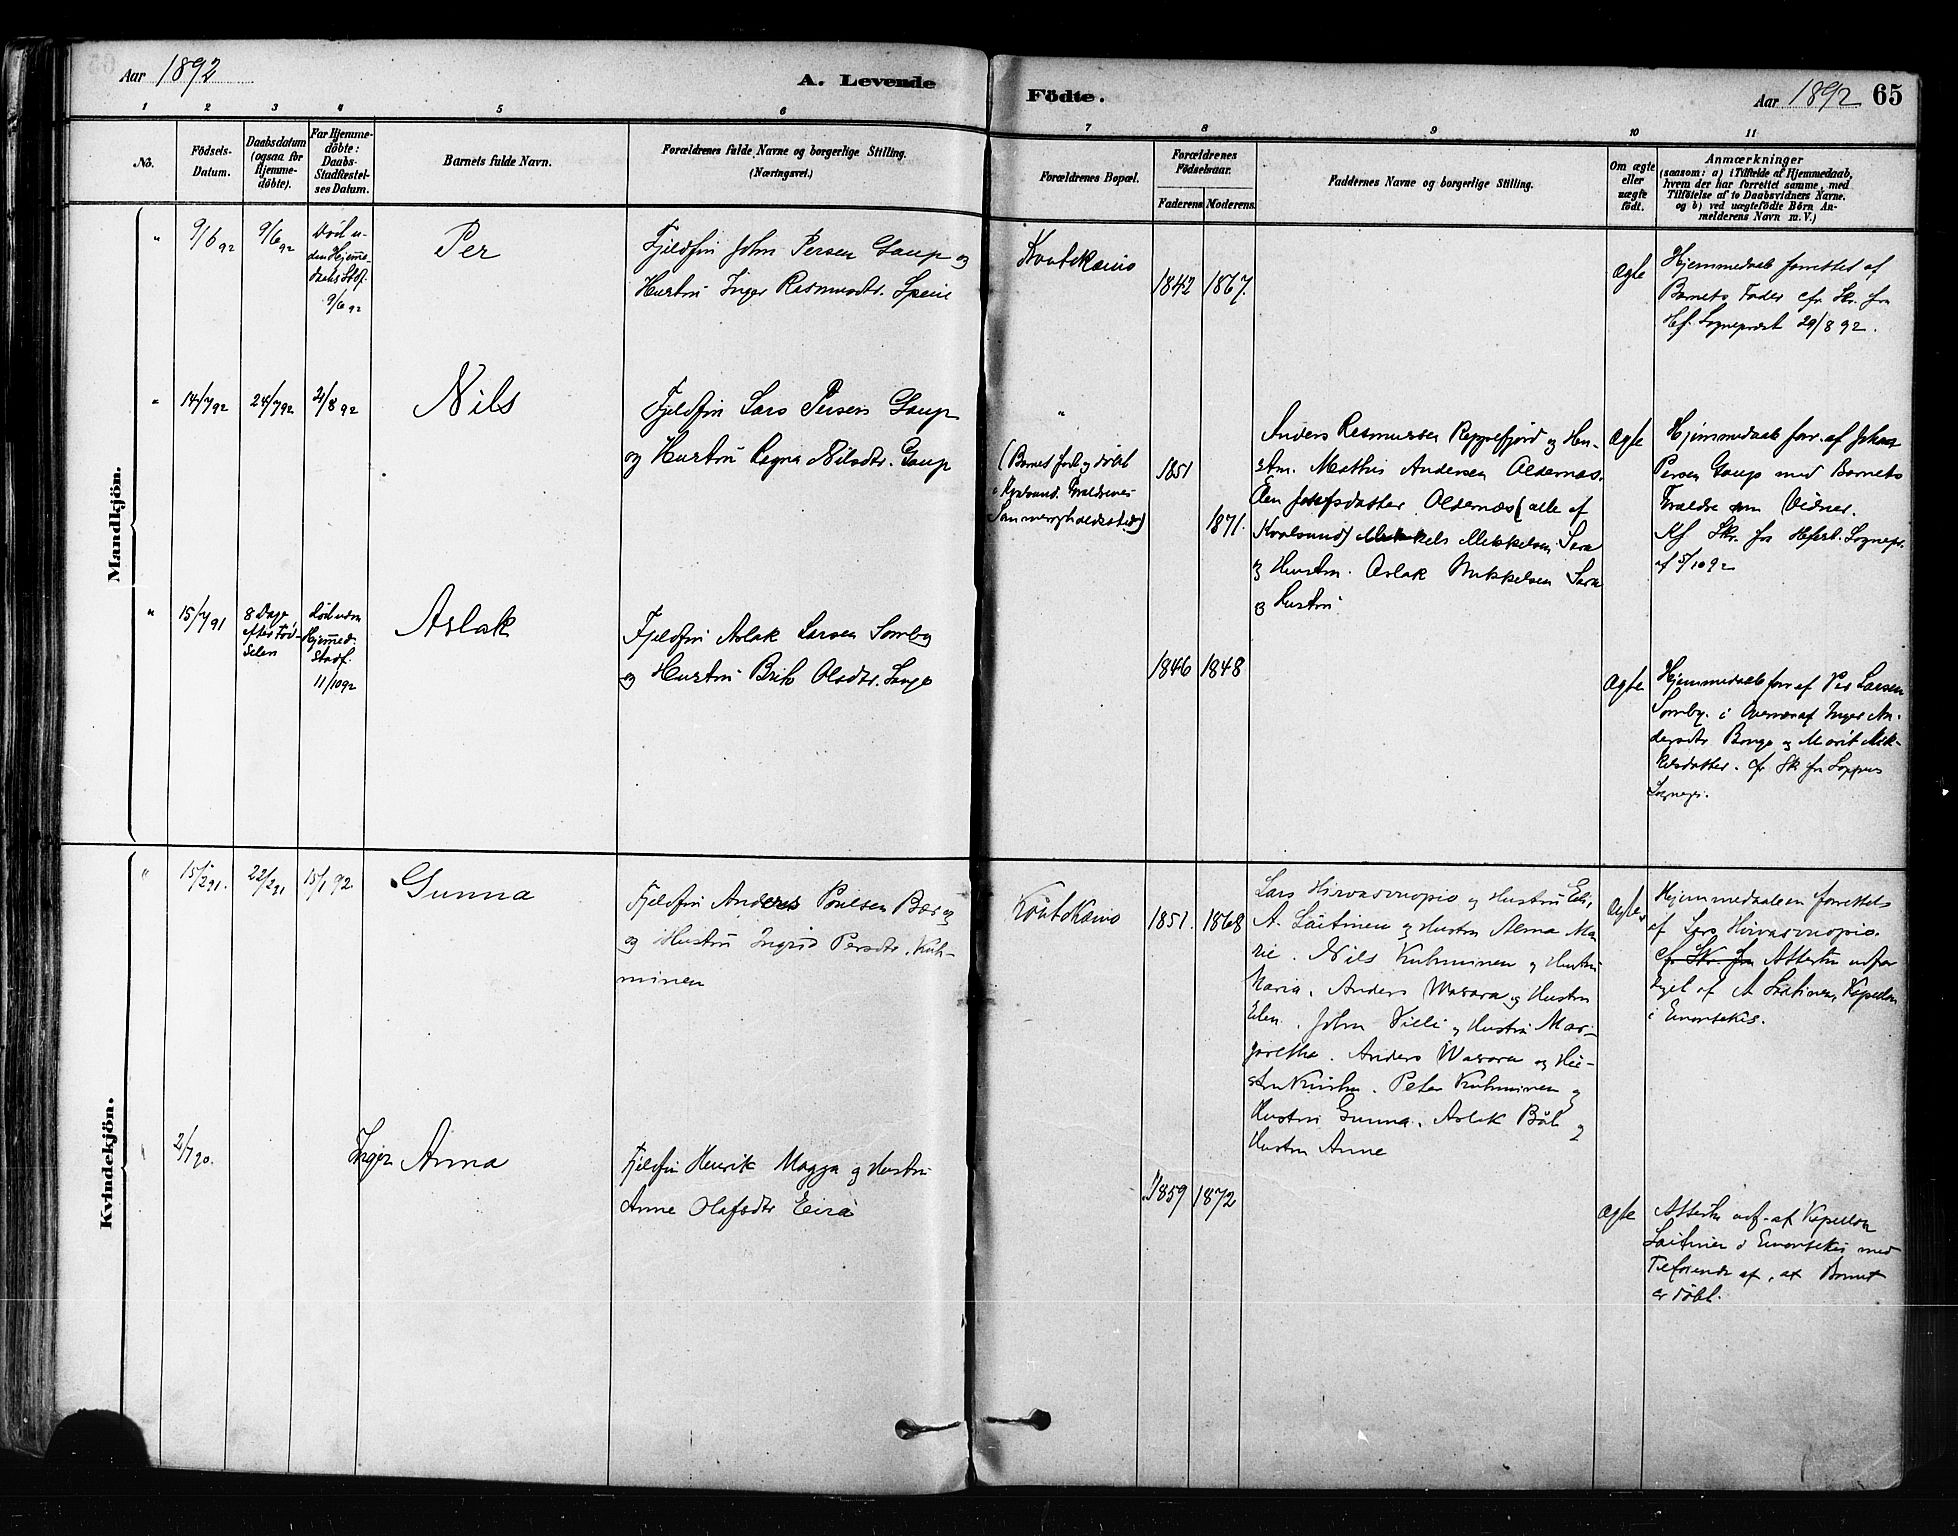 Aar 1892
A. Levende
Födte.
Aar 1892 65
1 2 3 4 5 6 7 8 9 10 11
No.
Födsels-
Datum.
Daabsdatum
(ogsaa for
Hjemme-
döbte).
For Hjemme-
döbte:
Daabs-
Stadfæstel-
ses Datum.
Barnets fulde Navn.
Forældrenes fulde Navne og borgerlige Stilling.
(Næringsvei.)
Forældrenes Bopæl.
Forældrenes
Födselsaar.
Faderens. Moderens.
Faddernes Navne og borgerlige Stilling.
Om ægte
eller
uægte
födt.
Anmærkninger
(saasom: a) i Tilfælde af Hjemmedaab,
hvem der har forrettet samme, med
Tilföielse af to Daabsvidners Navne.
og b) ved uægtefödte Börn An-
melderens Navn m. V.)
Mandkjön.
" 9/6 92
9/6 92
Död u-
den Hjemme-
daabs Stadf.
9/6 92
Per
Fjeldfin John Persen Gaup og
Hustru Inger Rasmusdtr. Spein
Koutokæino
1842 1867.
Ægte
Hjemmedaab forrettet af
Barnets Fader cfr. Skr. fra
Hf. Sognepræst 29/8 92.
" 14/7 92
24/7 92
21/8 92
Nils
Fjeldfin Lars Persen Gaup
og Hustru Ragna Nilsdtr. Gaup
"
(Barnet født og døbt
i Kvalsund. Forældrenes
Sommeropholdssted)
1851
1871.
Anders Rasmussen Reppefjord og Hu-
stru. Mathis Andersen Oldernæs.
Elen Josefsdatter Oldernæs (alle af
Kvalsund) Mikkel Mikkelsen Sara
og Hustru. Aslak Mikkelsen Sara
og Hustru
Ægte
Hjemmedaab forr. af Johan
Persen Gaup med Barnets
Forældre som Vidner.
Kf Skr. fra Hferst. Sognepr.
af 5/10 92
" 15/7 91
8 Dage
efter Fød-
selen
Død uden
Hjemmed.
Stadf.
11/10 92
Aslak
Fjeldfin Aslak Larsen Somby
og Hustru Brita Olsdtr.
1846 1848
Ægte
Hjemmedaab forr. af Per Larsen
Somby. i Overvær af Inger An-
dersdtr Bongo og Marit Mik-
kelsdatter. cfr Skr fra Loppens
Sognepr.
Kvindekjön.
" 15/2 91.
22/2 91
15/1 92.
Gunna
Fjeldfin Anders Poulsen Bær og
og Hustru Ingrid Persdtr. Kuh-
minen
Koutokæino
1851. 1868
Lars Hirvasvuopio og Hustru Eli,
A. Laitinen og Hustru Alma Ma-
rie. Nils Kuhminen og Hustru
Maria. Anders Wasara og Hustru
Elen. John Vieli og Hustru Mar-
gretha. Anders Wasara og Hu-
stru Kristin. Peter Kuhminen og
Hustru Gunna. Aslak Bål og
Hustru Anne
Ægte
Hjemmedaaben forrettets
af Lars Hirvasvuopio.
cfr Skr. fra Attester udfær-
diget af A Laitinen, Kapellan
i Enontekis.
" 2/7 90.
Inger Anna
Fjeldfin Henrik Magga og Hustru
Anne Olafsdtr Eira
1859 1872
Ægte
Attester udf. af Kapellan
Laitinen i Enontekis med
Tilføiende af, at Barnet
er døbt.